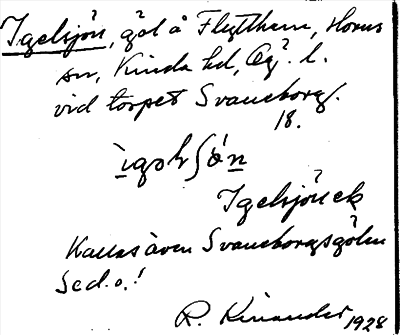 Igelsjön, göl å Flytthem, Horns
sn, Kinda hd, Ög. l.
vid torpet Svaneborg.
18.
ìgəlʃǿn
Igelsjöäck
Kallas även Svaneborgsgölen
se d. o.!
R. Kinander 1928